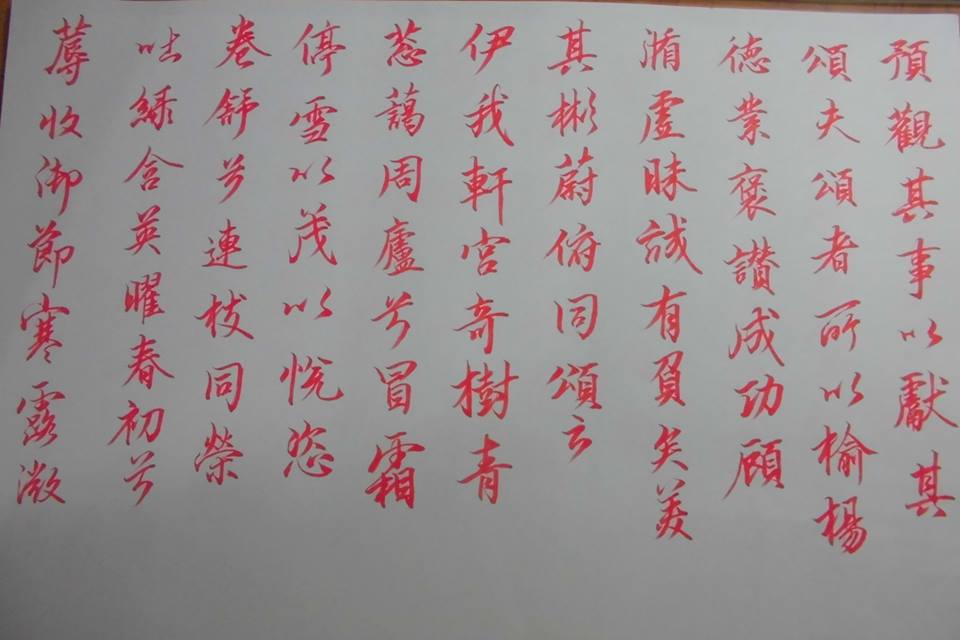 預觀其事以獻其
頌夫頌者所以榆楊
德業褒讃成功顧
循虛昧誠有負矣美
其彬蔚俯同頌云
伊我軒宮奇樹青
蔥藹周廬兮冒霜
停雪以茂以悅恣
卷舒兮連枝同榮
吐綠含英曜春初兮
蓐收御節寒露微